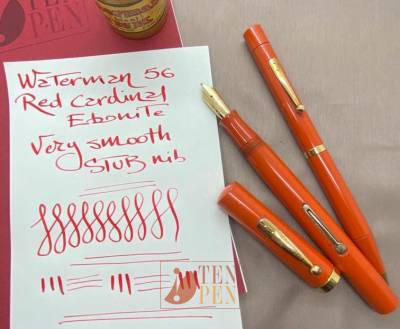 TEN
PEN
Waterman 56
Red Cardinal
Ebonite
Very smooth
STUB nib
TEN
PEN